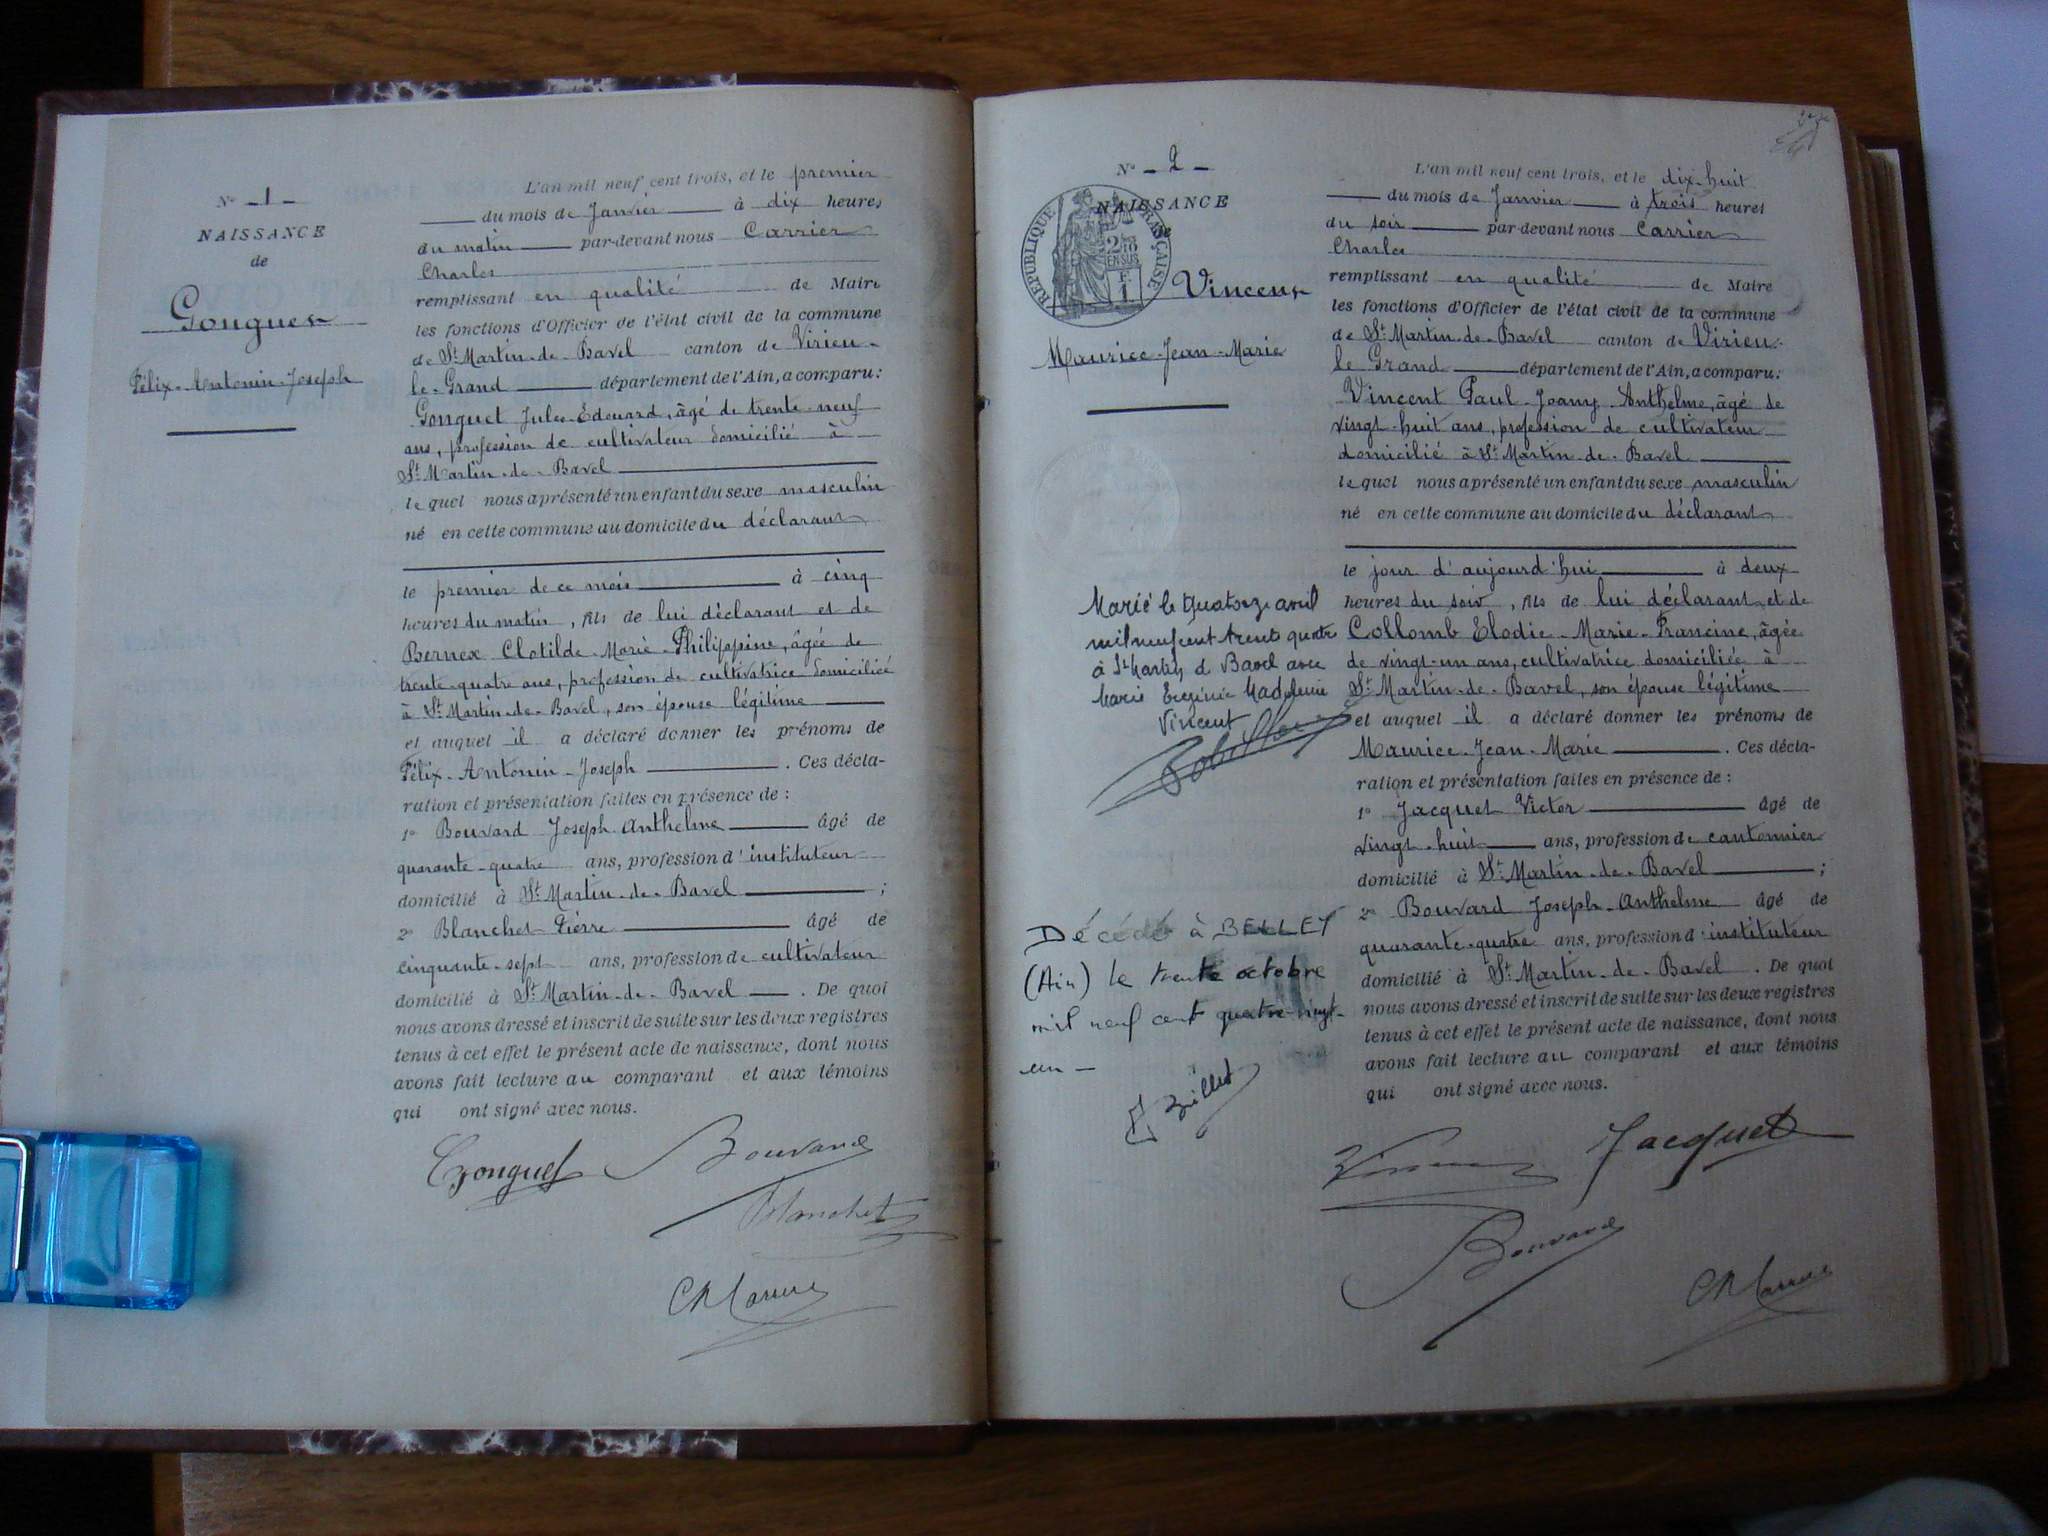 N° 1
NAISSANCE
de
Gonguet
Félix-Antonin-Joseph
L'an mil neuf cent trois, et le premier
du mois de Janvier à dix heures
du matin par-devant nous Carrier
Charles
remplissant en qualité de Maire
les fonctions d'Officier de l'état civil de la commune
de St Martin-de-Bavel canton de Virieu-
le-Grand département de l'Ain, a comparu:
Gonguet Jules-Edouard, âgé de trente-neuf
ans, profession de cultivateur domicilié à
St Martin-de-Bavel
lequel nous a présenté un enfant du sexe masculin
né en cette commune au domicile du déclarant
le premier de ce mois à cinq
heures du matin, fils de lui déclarant et de
Bernex Clotilde-Marie-Philippine, âgée de
trente-quatre ans, profession de cultivatrice domiciliée
à St Martin-de-Bavel, son épouse légitime
et auquel il a déclaré donner les prénoms de
Félix-Antonin-Joseph . Ces décla-
ration et présentation faites en présence de :
1° Bouvard Joseph-Anthelme âgé de
quarante-quatre ans, profession d'instituteur
domicilié à St Martin-de-Bavel ;
2° Blanchet Pierre âgé de
cinquante-sept ans, profession de cultivateur
domicilié à St Martin-de-Bavel . De quoi
nous avons dressé et inscrit de suite sur les deux registres
tenus à cet effet le présent acte de naissance, dont nous
avons fait lecture au comparant et aux témoins
qui ont signé avec nous.
Gonguet Bouvard
Blanchet
Ch Carrier
N° 2
NAISSANCE
RÉPUBLIQUE FRANÇAISE
EN SUS
Vincent
Maurice-Jean-Marie
Marié le quatorze avril
mil neuf cent trente quatre
à St Martin d Bavel avec
Marie Eugénie Madeleine
Vincent
Décédé à BELLEY
(Ain) le trente octobre
mil neuf cent quatre-vingt-
un -
L'an mil neuf cent trois, et le dix-huit
du mois de Janvier à trois heures
du soir par-devant nous Carrier
Charles
remplissant en qualité de Maire
les fonctions d'Officier de l'état civil de la commune
de St Martin-de-Bavel canton de Virieu-
le Grand département de l'Ain, a comparu:
Vincent Paul-Joany-Anthelme, âgé de
vingt-huit ans, profession de cultivateur
domicilié à St Martin-de-Bavel
lequel nous a présenté un enfant du sexe masculin
né en cette commune au domicile du déclarant
le jour d'aujourd'hui à deux
heures du soir, fils de lui déclarant et de
Collomb Elodie-Marie-Francine, âgée
de vingt-un ans, cultivatrice domiciliée à
St Martin-de-Bavel, son épouse légitime
et auquel il a déclaré donner les prénoms de
Maurice-Jean-Marie . Ces décla-
ration et présentation faites en présence de :
1° Jacquet Victor âgé de
vingt-huit ans, profession de cantonnier
domicilié à St Martin-de-Bavel ;
2° Bouvard Joseph-Anthelme âgé de
quarante-quatre ans, profession d'instituteur
domicilié à St Martin-de-Bavel . De quoi
nous avons dressé et inscrit de suite sur les deux registres
tenus à cet effet le présent acte de naissance, dont nous
avons fait lecture au comparant et aux témoins
qui ont signé avec nous.
Vincent Jacquet
Bouvard
Ch Carrier